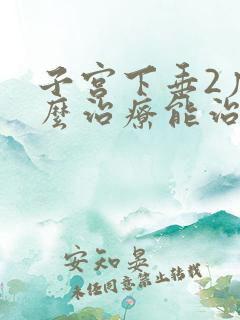 子宫下垂2
麽治療能治
安知晏
未经同意禁止转载